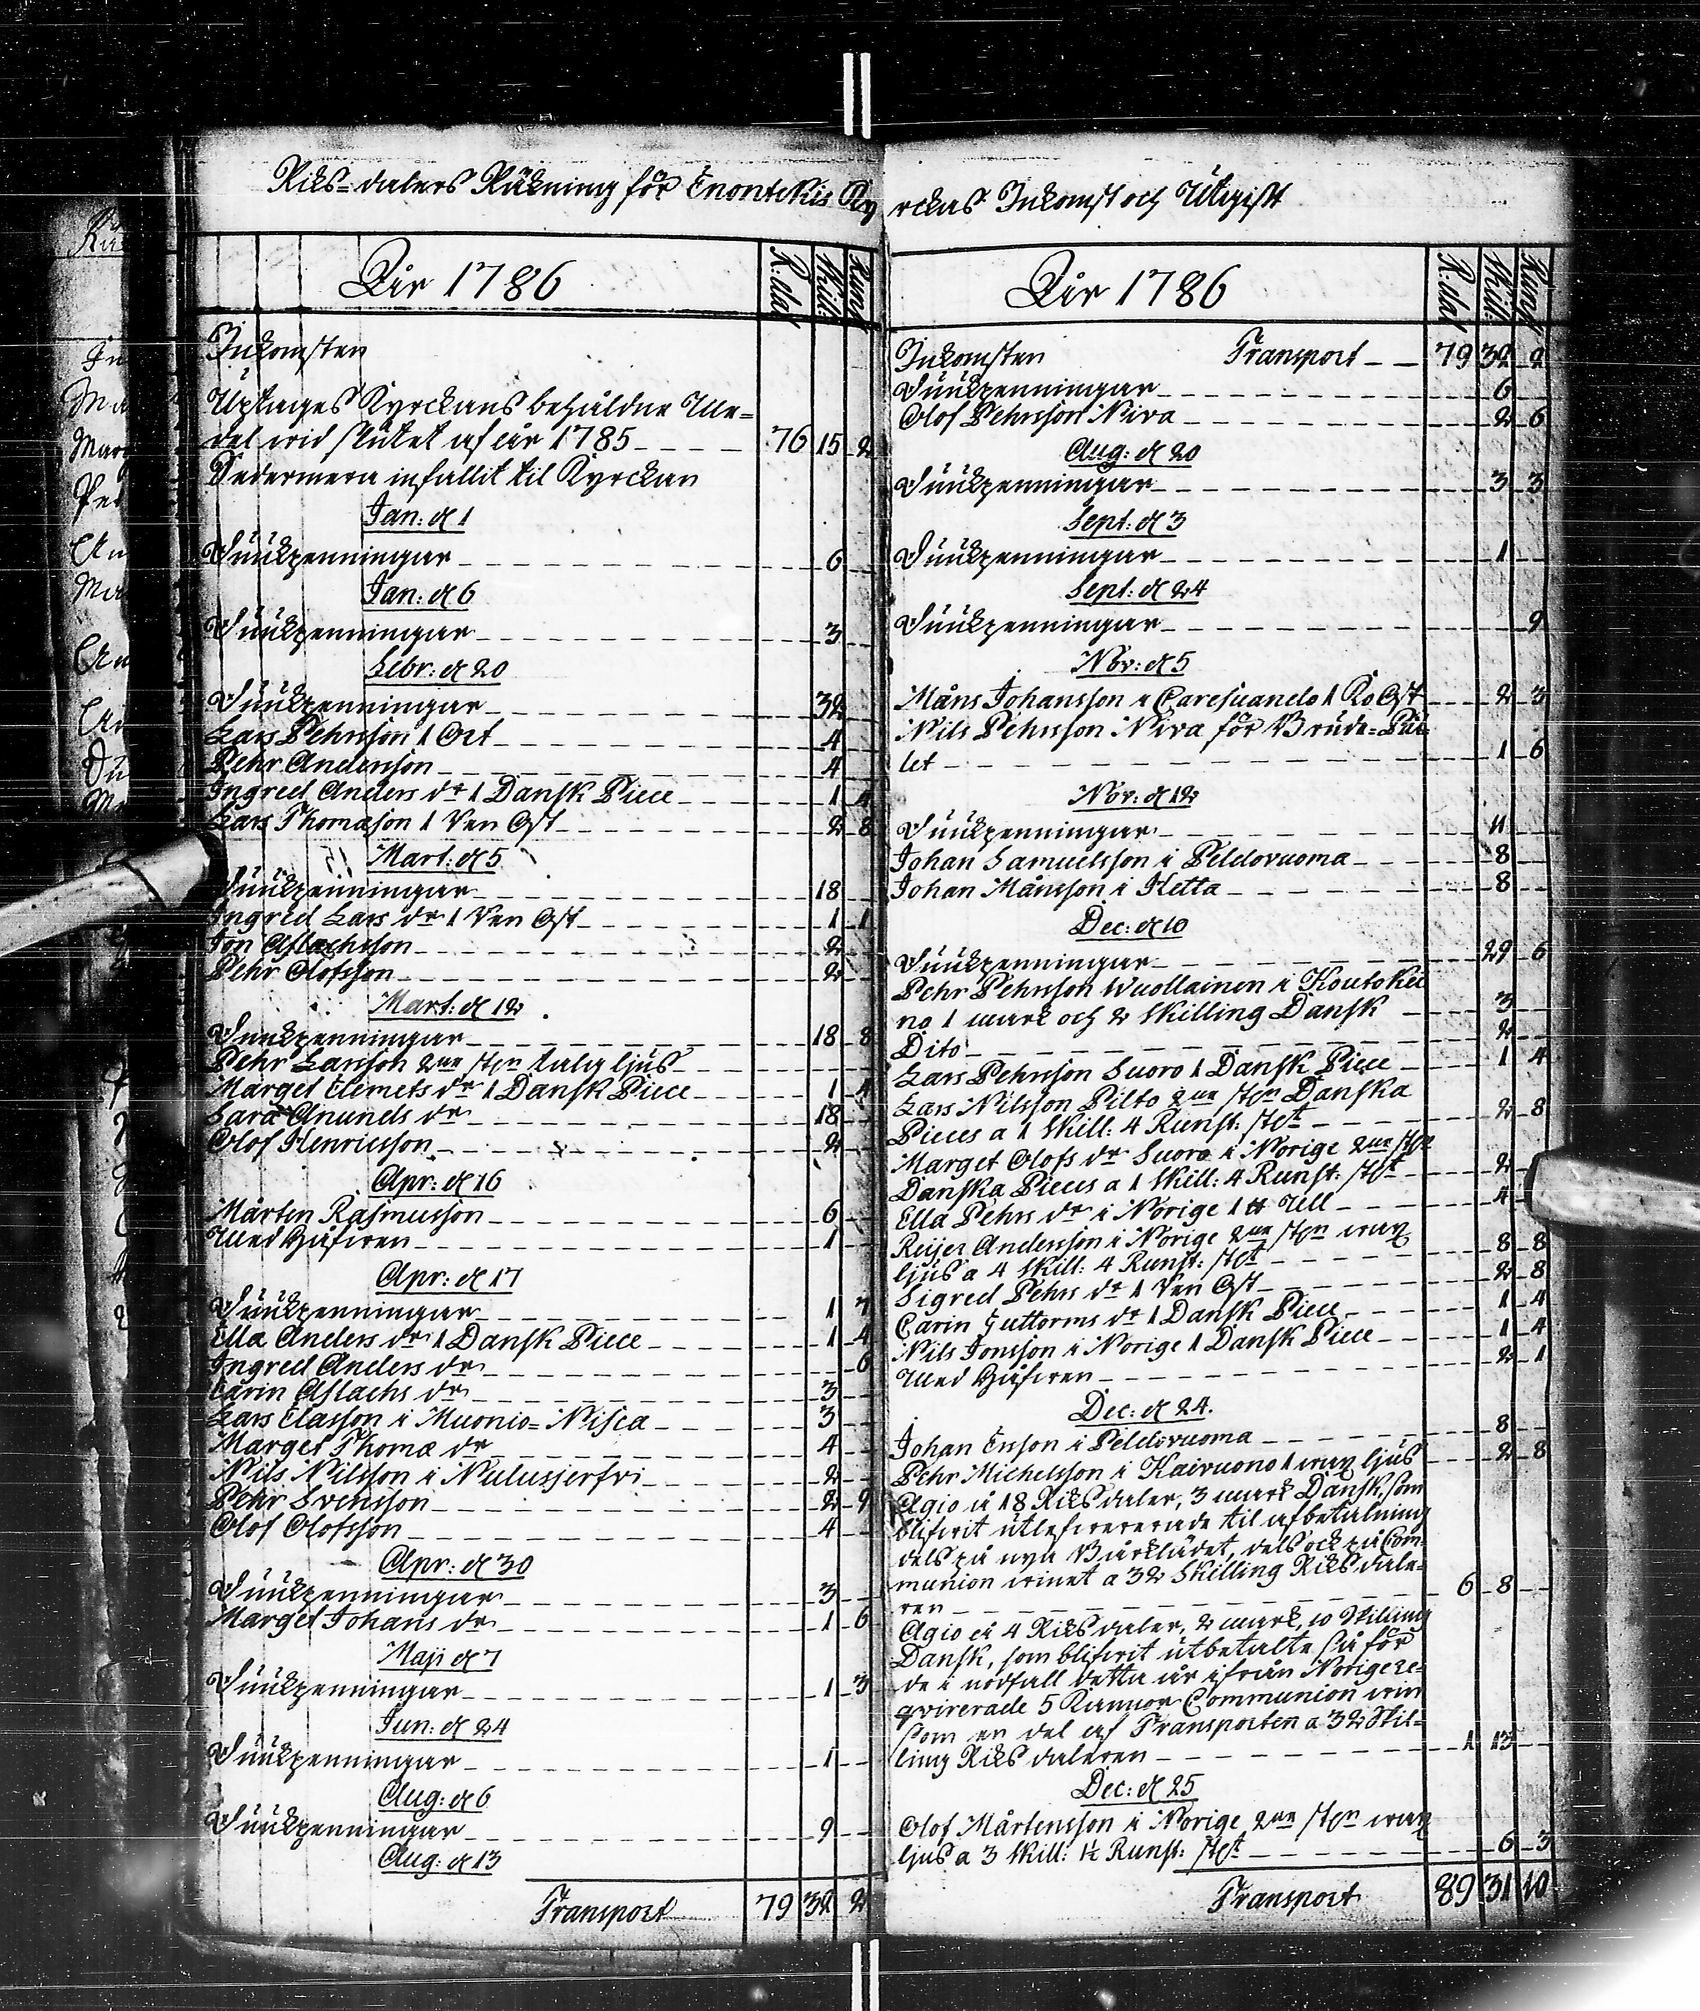 Riks-dalers Räkning för Enontekis Ky
rckas Inkomst och Utgift
År 1786
R:dal Skill: Runst
Inkomsten
Uptages Kyrckans behåldne Me-
del wid slutet af år 1785 76 15 2
Sedermera infallit til Kyrckan
Jan: d 1
Säckpenningar 6
Jan: d 6
Säckpenningar 3
Febr: d 20
Säckpenningar 32
Lars Pehrsson 1 Ort 4
Pehr Andersson 4
Ingred Anders dr 1 Dansk Piece 1 4
Lars Thomason 1 Ren Ost 2 8
Mart: d 5
Säckpenningar 18
Ingred Lars dr 1 Ren Ost 1 1
Jon Aslachsson 2
Pehr Olofsson 2
Mart: d 12
Säckpenningar 18 8
Pehr Larsson 2ne st:n talg ljus
Marget Clemets dr 1 Dansk Piece 1 4
Sara Anunds dr 18
Olof Henricsson 2
Apr: d 16
Mårten Rasmusson 6
Med Håfwen 1
Apr: d 17
Säckpenningar 1 7
Ella Anders dr 1 Dansk Piece 1 4
Ingred Anders dr 6
Carin Aslachs dr 3
Lars Classon i Muonio-Nisca 3
Marget Thomæ dr 4
Nils Nilsson i Nulusjerfvi 2
Pehr Svensson 2 9
Olof Olofsson 4
Apr: d 30
Säckpenningar 3
Marget Johans dr 1 6
Maji d 7
Säckpenningar 1 3
Jun: d 24
Säckpenningar 1
Aug: d 6
Säckpenningar 9
Aug: d 13
Transport 79 32 2
År 1786
R:dal Skill: Runst
Inkomsten Transport 79 32 2
Säckpenningar 6
Olof Pehrsson Niva 2 6
Aug: d 20
Säckpenningar 3 3
Sept: d 3
Säckpenningar 1
Sept: d 24
Säckpenningar 9
Nov: d 5
Måns Johansson i Caresuando 1 Ko Ost 2 3
Nils Pehrsson Niva för Brude-Päl-
let 1 6
Nov: d 12
Säckpenningar 11
Johan Samuelsson i Peldovuoma 8
Johan Månsson i Hetta 8
Dec: d 10
Säckpenningar 29 6
Pehr Pehrsson Wuollainen i Koutokei
no 1 mark och 2 Skilling Dansk 3
Dito 2
Lars Pehrsson Suoro 1 Dansk Piece 1 4
Lars Nilsson Pilto 2ne st:n Danska
Pieces a 1 Skill: 4 Runst: st:t 2 8
Marget Olofs dr Suoro i Norige 2ne st:n
Danska Pieces a 1 Skill: 4 Runst: st:t 2
Ella Pehrs dr i Norige 1 ℔ Ull 4
Reijer Andersson i Norige 2ne st:n wax
ljus a 4 Skill: 4 Runst: st:t 8 8
Sigred Pehrs dr 1 Ren Ost 2 8
Carin Guttorms dr 1 Dansk Piece 1 4
Nils Jonsson i Norige 1 Dansk Piece 1 4
Med Håfwen 2 1
Dec: d 24.
Johan Ersson i Peldovuoma 8
Pehr Michelsson i Kaivuono 1 wax ljus 2 8
Agio å 18 Riksdaler, 3 mark Dansk, som
blifwit utlefwererade til afbetalning
dels på nya Bårklädet, dels ock på Com-
munion winet a 32 Skilling Riksdale-
ren 6 8
Agio å 4 Riksdaler, 2 mark, 10 Skilling
Dansk, som blifwit utbetalte så för
de i nödfall detta år ifrån Norige re-
qvirerade 5 Kannor Communion win
som en del af Transporten a 32 Skil-
ling Riksdaleren 1 13
Dec: d 25
Olof Mårtensson i Norige 2ne st:n wax
ljus a 3 Skill: 1½ Runst: st:t 6 3
Transport 89 31 10